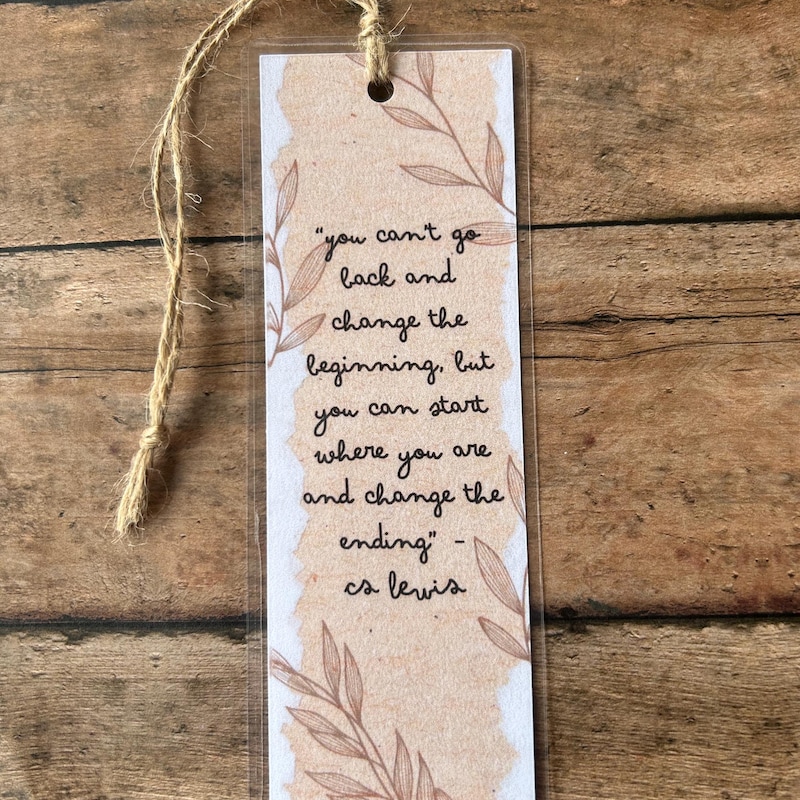 "you can't go
back and
change the
beginning, but
you can start
where you are
and change the
ending" -
cs lewis